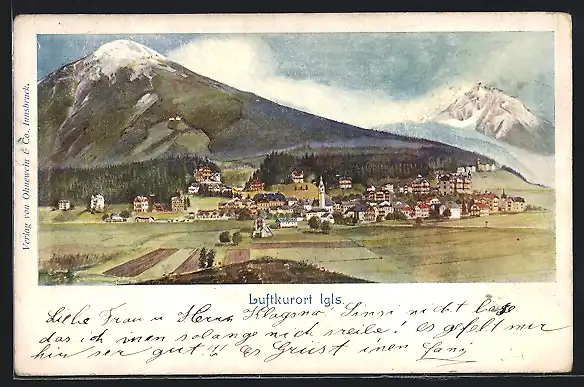 Verlag von Ohnewein & Co. Innsbruck.
Luftkurort Igls.
Liebe Frau u Herr Klagsna Sinsi nicht
das ich inen solange nich sreibe! es gefelt mir
hir ser gut!! es Grüst inen